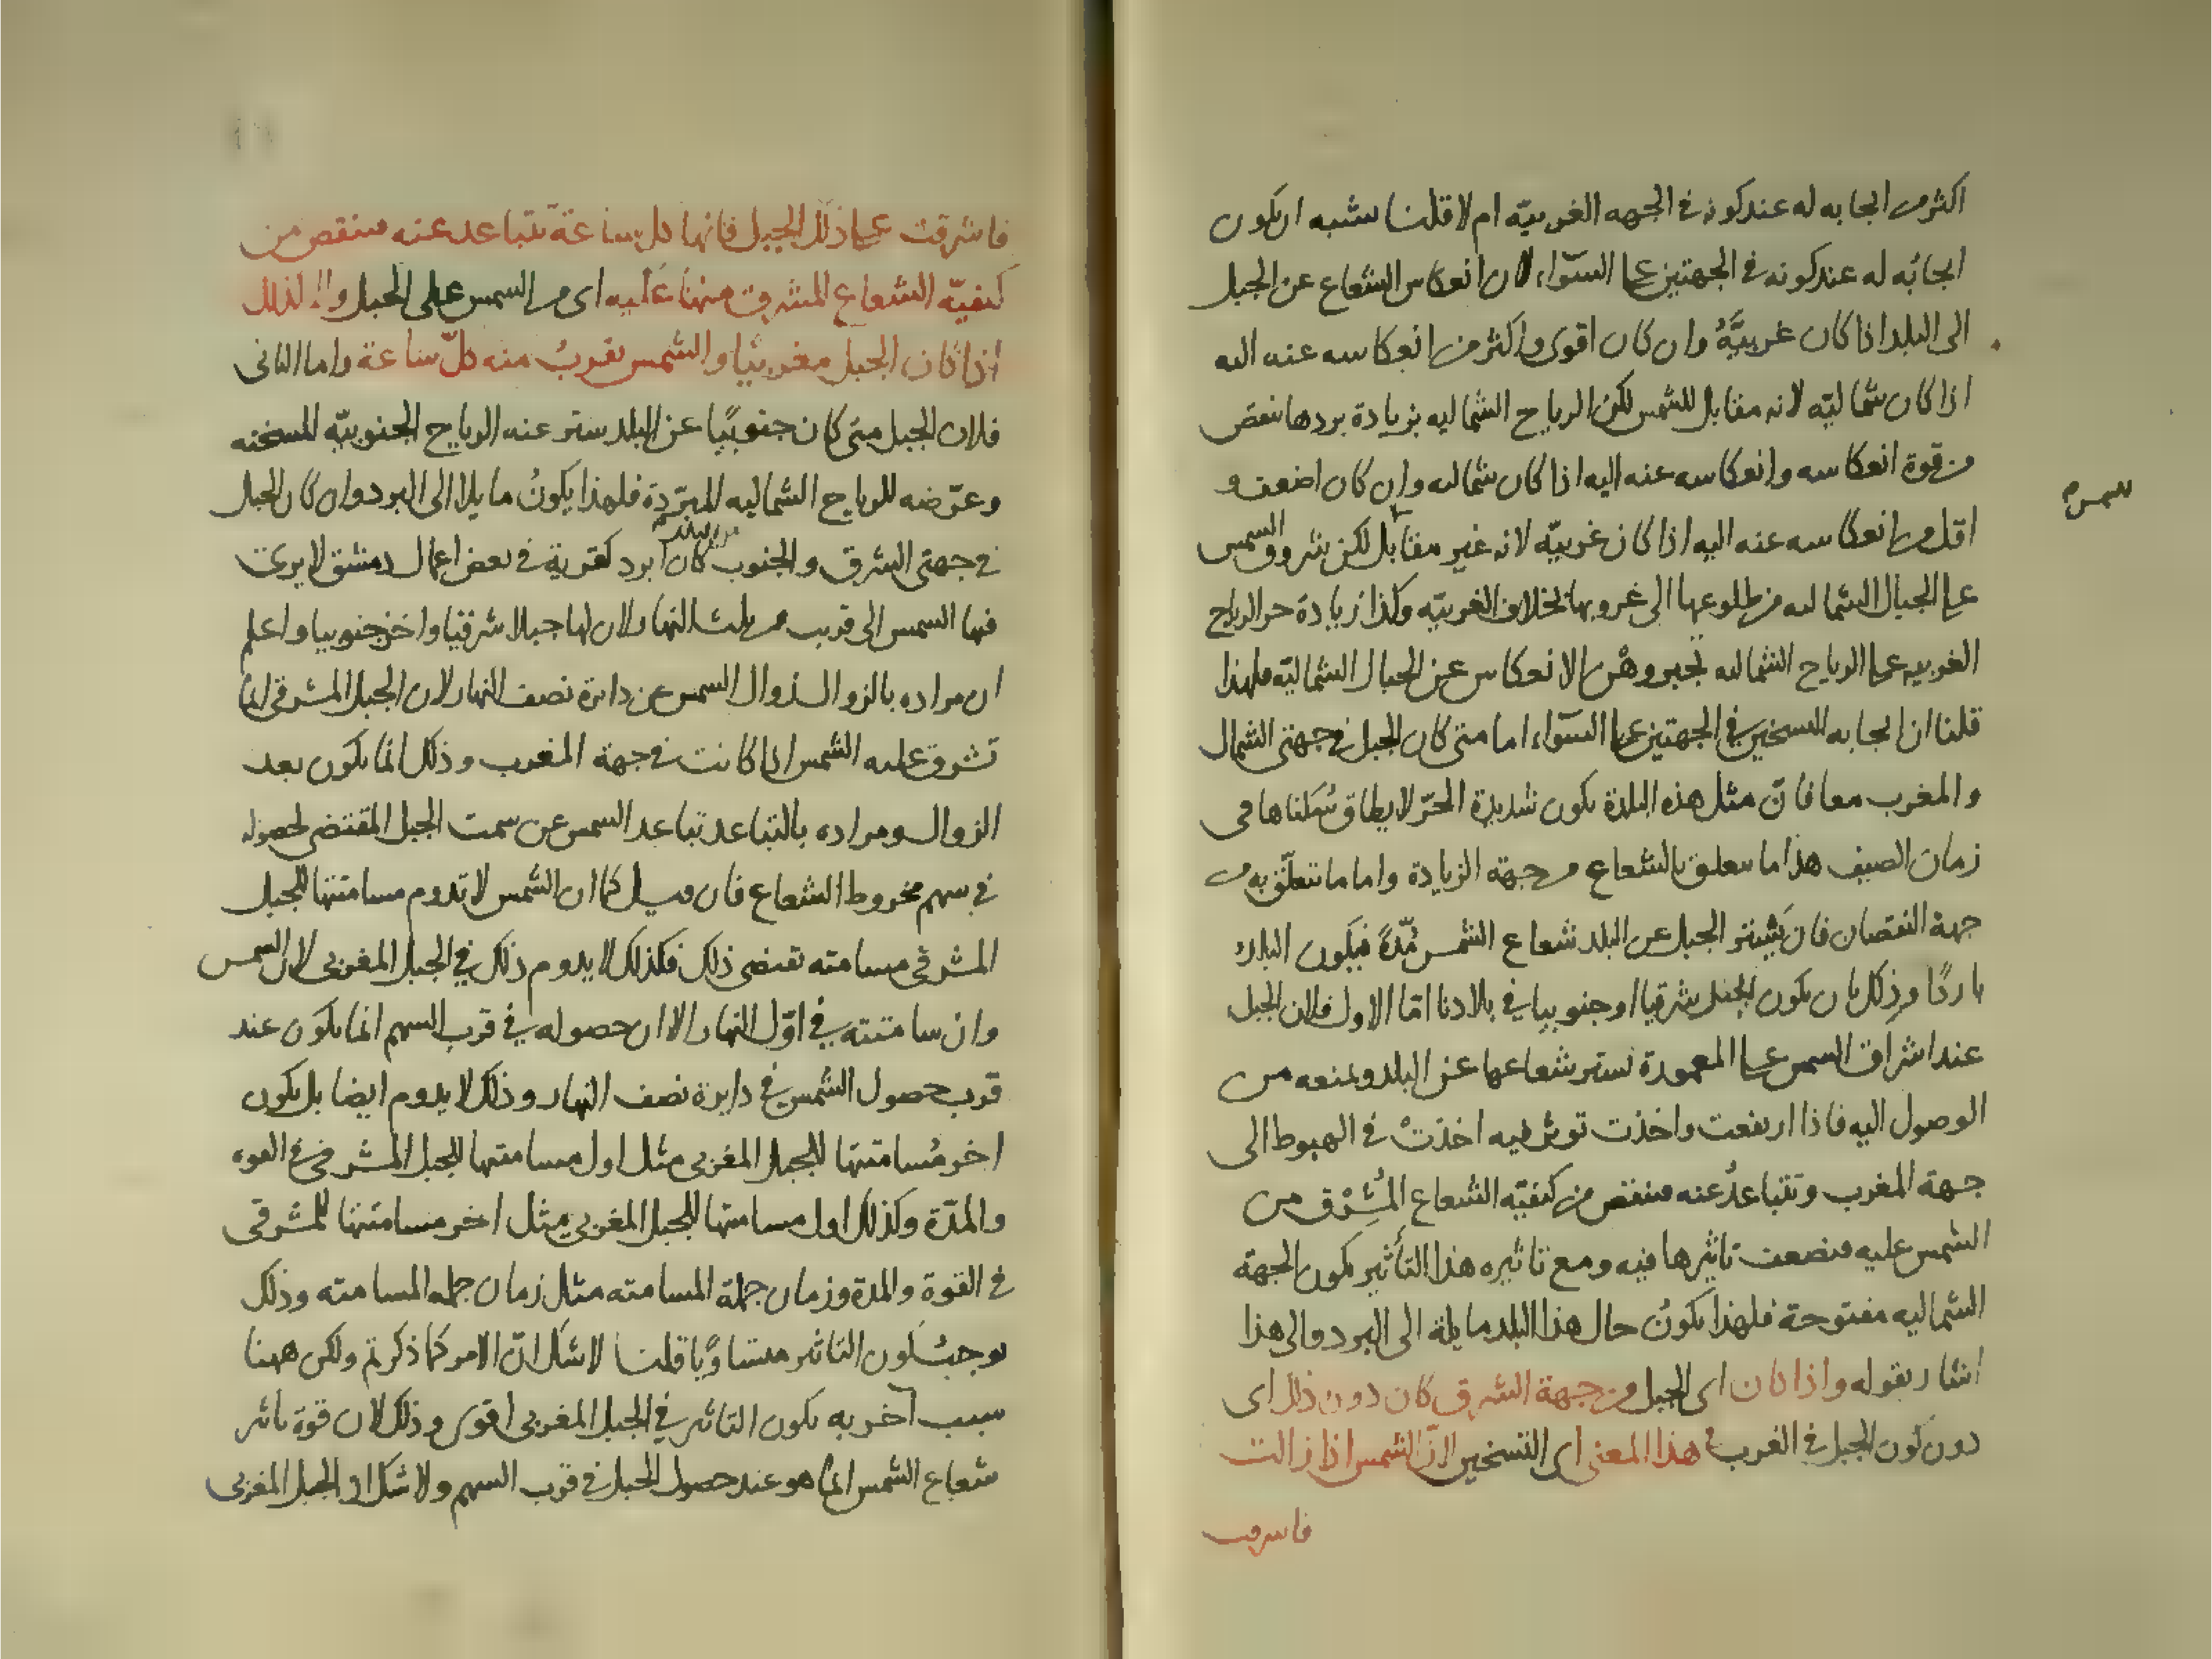 اكثر من ايجابه له عند كونه في الجهه الغربيّه ام لا قلنا يشبه ان يكون
ايجابُه له عند كونه في الجهتين على السّوآء لان انعكاس الشعاع عن الجبل
الى البلد اذا كان غربيَّهُ وان كان اقوى واكثر من انعكاسه عنه اليه
اذا كان شماليّه لانه مقابل للشمس لكن الرياح الشماليه بزيادة بردها تنقص
من قوة انعكاسه وانعكاسه عنه اليه اذا كان شماليه وان كان اضعف و
اقل من انعكاسه عنه اليه اذا كان غربيّه لانه غير مقابل لكن شروق الشمس
للشمس
على الجبال الشماليه من طلوعها الى غروبها بخلاف الغربيّه وكذا زيادة حر الرياح
الغربيه على الرياح الشماليه تجبر وهن الانعكاس عن الجبال الشماليّه فلهذا
قلنا ان ايجابه للتسخين في الجهتين على السّوآء اما متى كان الجبل في جهتي الشمال
والمغرب معا فانّ مثل هذه البلدة يكون شديدة الحرّ لا يطاق سُكناها في
زمان الصيف هذا ما يتعلق بالشعاع من جهة الزيادة واما ما يتعلّق به من
جهة النقصان فان يَستر الجبل عن البلد شعاع الشمس مُدّةً فيكون البلد
باردًا وذلك بان يكون الجبل شرقيا او جنوبيا في بلادنا امّا الاول فلان الجبل
عند اشراق الشمس على المعمورة يستر شعاعها عن البلد ويمنعه من
الوصول اليه فاذا ارتفعت واخذت توثر فيه اخذتْ في الهبوط الى
جهة المغرب وتتباعدُ عنه فينقص من كيفيّه الشعاع المُشرِق من
الشمس عليه فيضعف تاثيرها فيه ومع تاثيره هذا التأثير يكون الجهة
الشماليه مفتوحة فلهذا يكونُ حال هذا البلد مايلة الى البرد والى هذا
اشار بقوله واذا كان اى الجبل من جهة الشرق كان دون ذلك اى
دون كون الجبل في الغرب في هذا المعنى اى التسخين لانّ الشمس اذا زالت
فاشرقت
فاشرقت على ذلك الجبل فانها كل ساعة تتباعد عنه فينقص من
كيفيّه الشعاع المشرق منها عليه اى من الشمس على الجبل ولا كذلك
اذا كان الجبل مغربيّا والشمس تقربُ منه كلّ ساعة واما الثانى
فلان الجبل متى كان جنوبيًا عن البلد ستر عنه الرياح الجنوبيّه المسخنه
وعرّضه للرياح الشماليه المبرّدة فلهذا يكونُ مايلا الى البرد وان كان الجبل
في جهتى الشرق والجنوب كان ابرد كقرية في بعض اعمال دمشق لا يرى
فيها الشمس الى قريب من ثلث النهار لان لها جبلا شرقيا واخر جنوبيا واعلم
ان مراده بالزوال زوال الشمس عن دائرة نصف النهار لان الجبل المشرقى انما
تشرق عليه الشمس اذا كانت في جهة المغرب وذلك انما يكون بعد
الزوال ومراده بالتباعد تباعد الشمس عن سمت الجبل المقتضى لحصوله
في سهم مخروط الشعاع فان قيل كما ان الشمس لا تدوم مسامتتها للجبل
المشرقى مسامته تقتضى ذلك فكذلك لا يدوم ذلك في الجبل المغربى لان الشمس
وان سامتته في اوّل النهار الا ان حصوله في قرب السهم انما يكون عند
قرب حصول الشمس في دايرة نصف النهار وذلك لا يدوم ايضا بل يكون
اخر مُسامتتها للجبل المغربى مثل اول مسامتتها للجبل المشرقى في القوه
والمدّة وكذلك اول مسامتتها للجبل المغربى مثل اخر مسامتتها للمشرقى
في القوة والمدة وزمان جملة المسامته مثل زمان جمله المسامته وذلك
يوجبُ كون التاثير متساويًا قلنا لا شك انّ الامر كما ذكرتم ولكن ههنا
سبب آخر به يكون التاثير في الجبل المغربى اقوى وذلك لان قوة تاثير
شعاع الشمس انما هو عند حصول الجبل في قرب السهم ولا شك ان الجبل المغربى